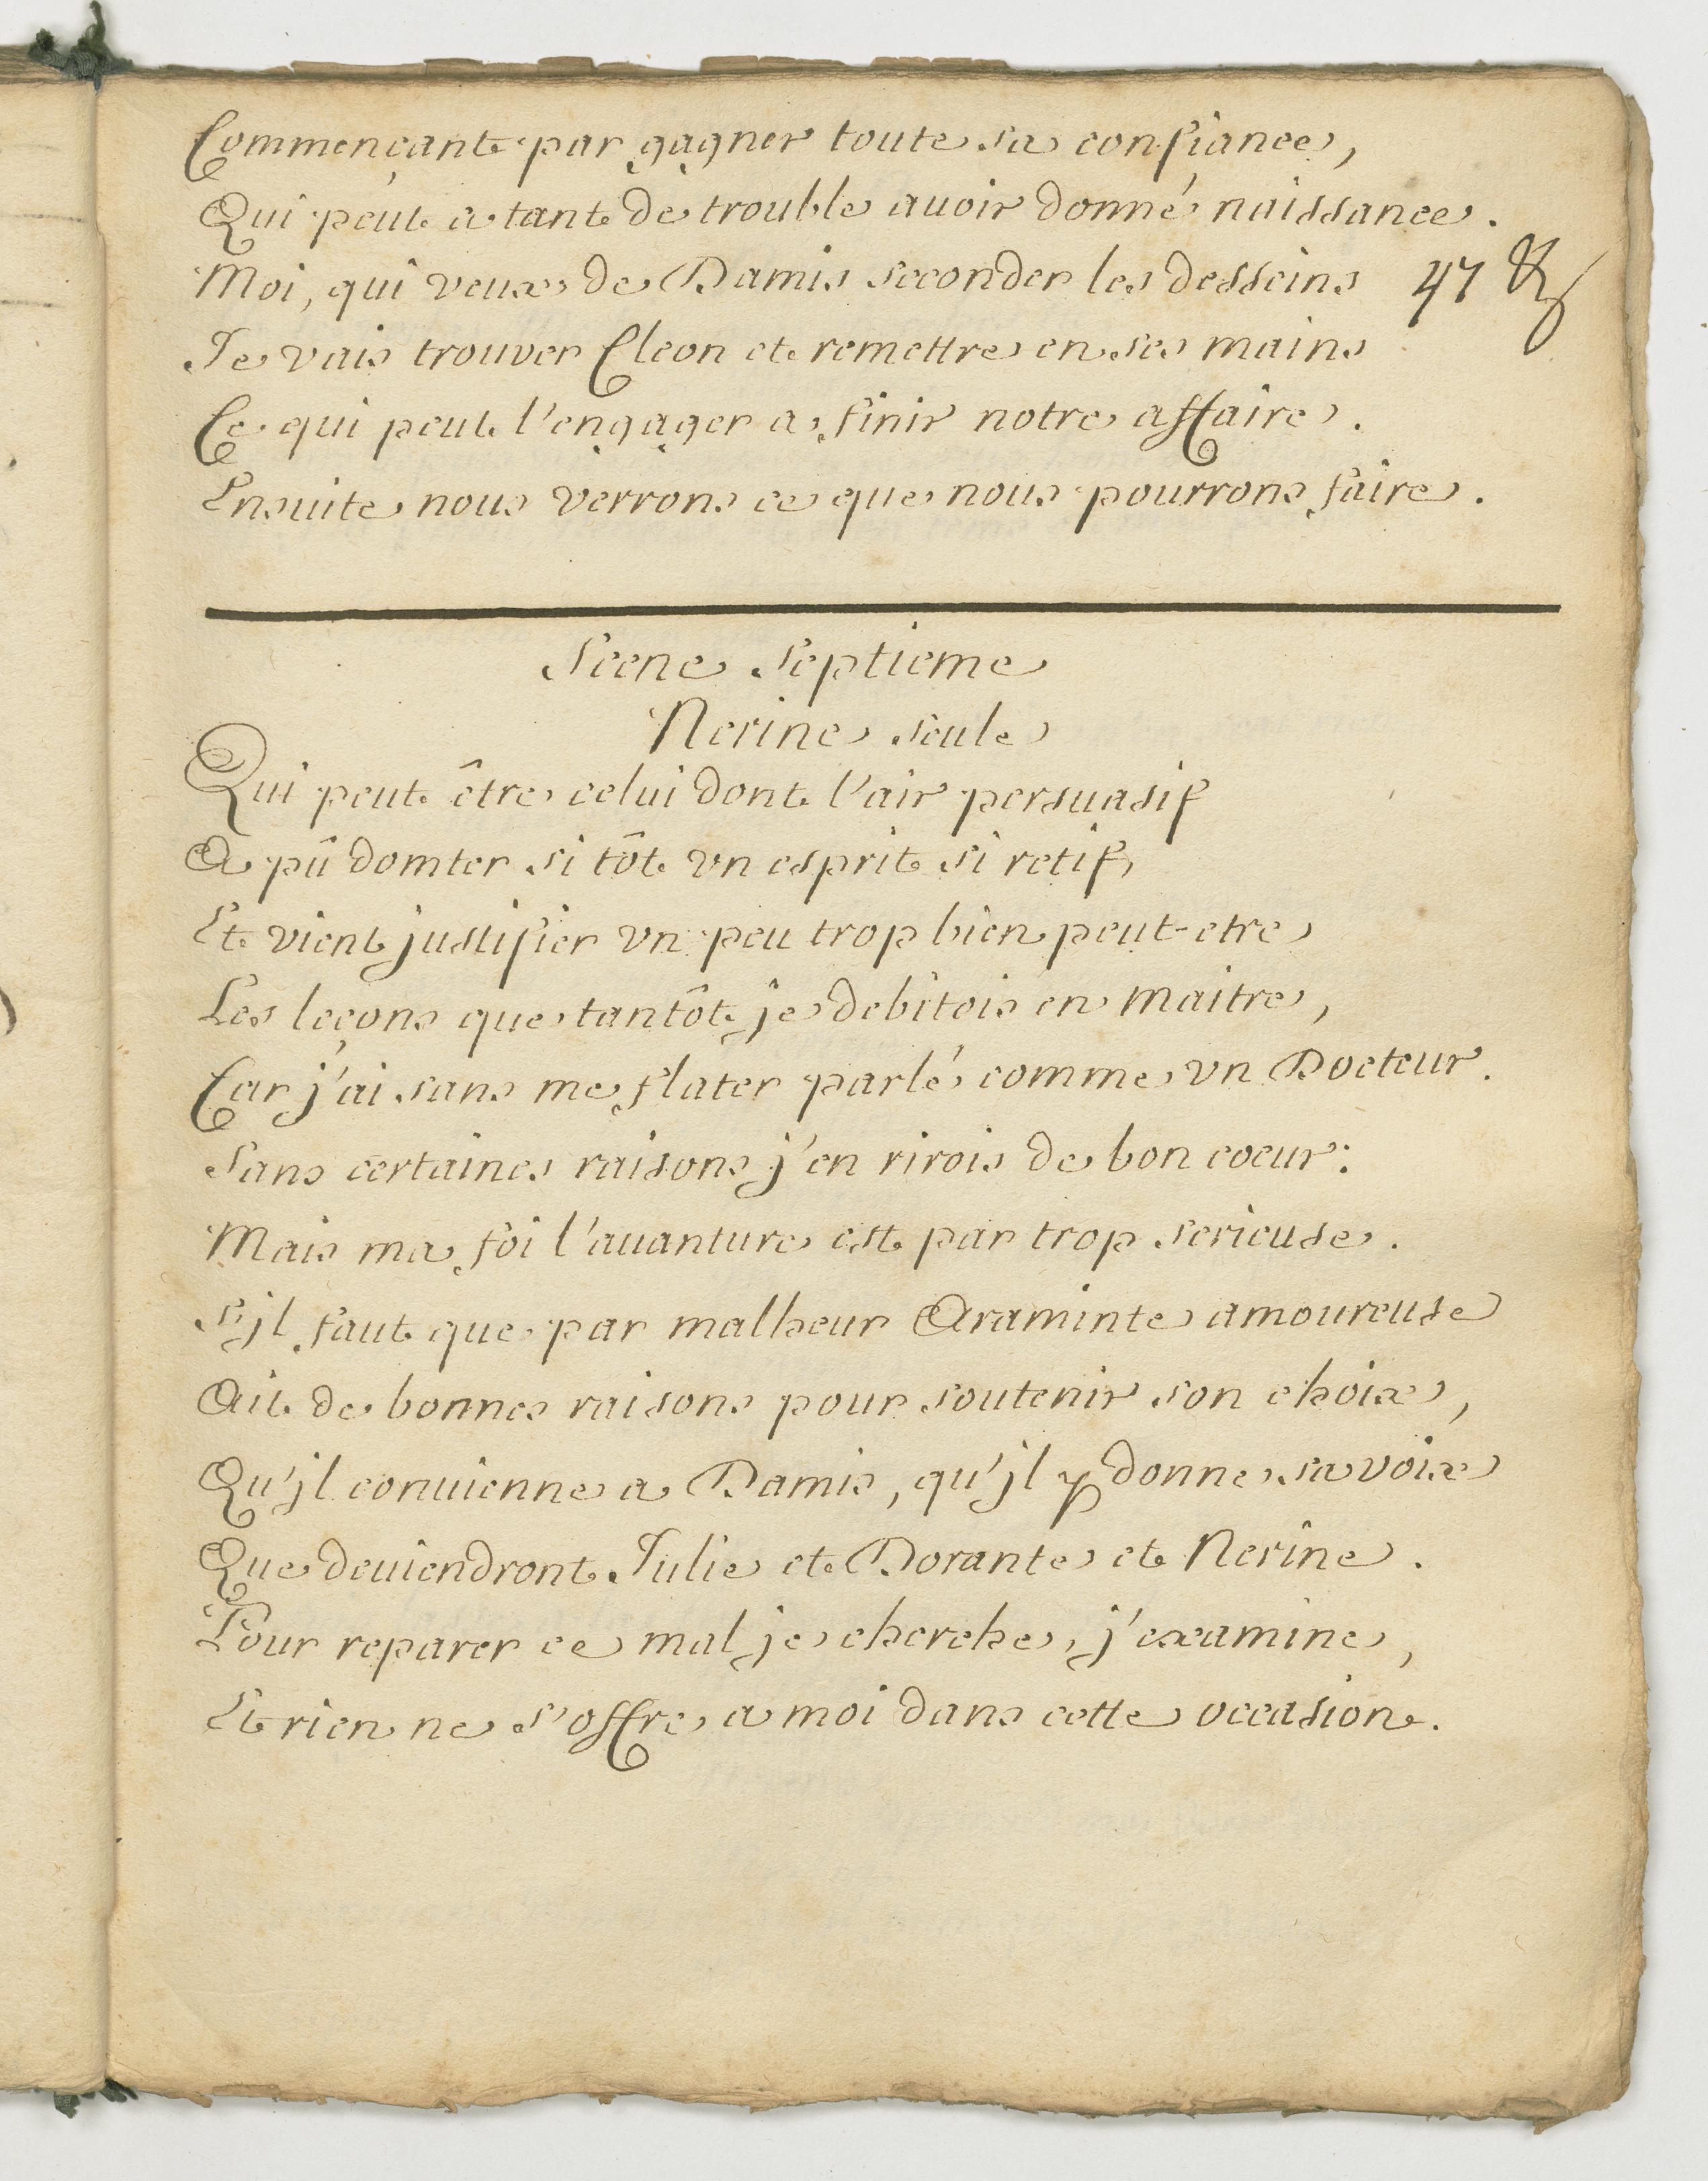 Commençant par gagner toute sa confiance,
Qui peut a tant de trouble auoir donné naissance.
Moi, qui veux de Damis seconder les desseins 47
Je vais trouver Cleon et remettre en ses mains
Ce qui peut l'engager a finir notre affaire.
Ensuite nous verrons ce que nous pourrons faire.
Scene Septieme
Nerine seule
Qui peut être celui dont l'air persuasif
A pû domter si tôt vn esprit si retif,
Et vient justifier vn peu trop bien peut-etre
Les leçons que tantôt je debitois en maitre,
Car j'ai sans me flater parlé comme vn Docteur.
Sans certaines raisons j'en rirois de bon coeur:
Mais ma foi l'auanture est par trop serieuse.
S'jl faut que par malheur Araminte amoureuse
Ait de bonnes raisons pour soutenir son choix,
Qu'jl conuienne a Damis, qu'jl y donne sa voix
Que deuiendront Julie et Dorante et Nerine.
Pour reparer ce mal je cherche, j'examine,
Et rien ne s'offre a moi dans cette occasion.